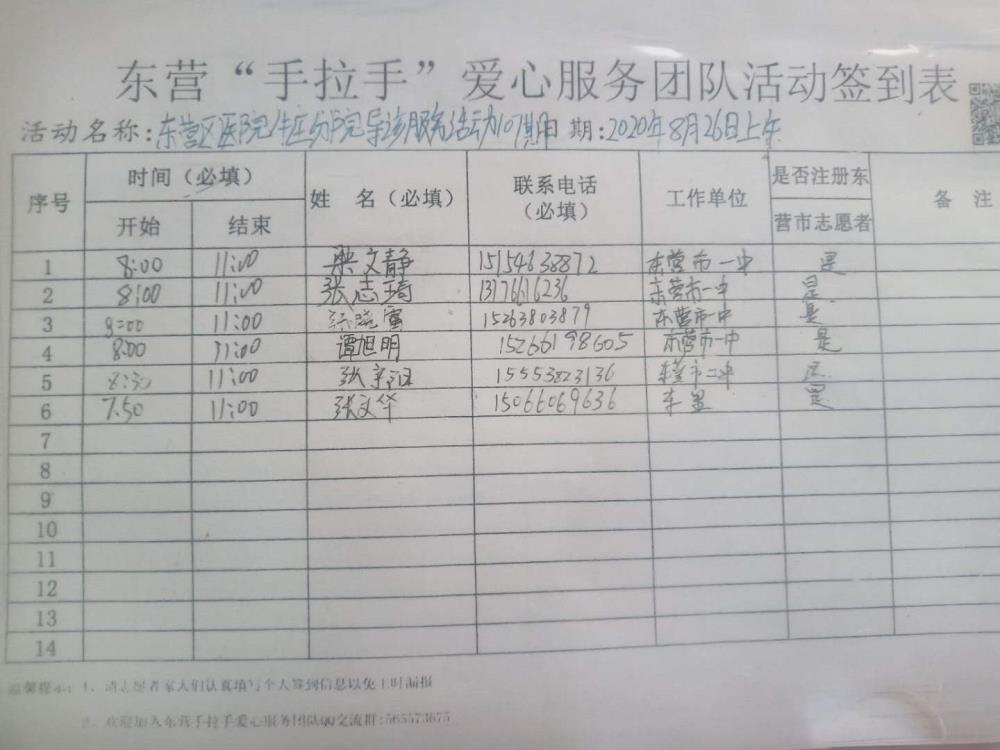 东营“手拉手”爱心服务团队活动签到表
活动名称:东营区医院牛庄分院导诊服务活动107期日期:2020年8月26日上午
序号 时间(必填) 姓 名(必填) 联系电话(必填) 工作单位 是否注册东营市志愿者 备 注
开始 结束
1 8:00 11:00 梁文静 15154638872 东营市一中 是
2 8:00 11:00 张志琦 13176616236 东营市一中 是
3 8:00 11:00 15263803879 东营市一中 是
4 8:00 11:00 谭旭明 15266198605 东营市一中 是
5 11:00 张 15553823136 东营市二中 是
6 7:50 11:00 张文华 15066069636 东营 是
7
8
9
10
11
12
13
14
温馨提示:1、请志愿者家人们认真填写个人签到信息以免工时漏报
2、欢迎加入东营手拉手爱心服务团队QQ交流群:565573675